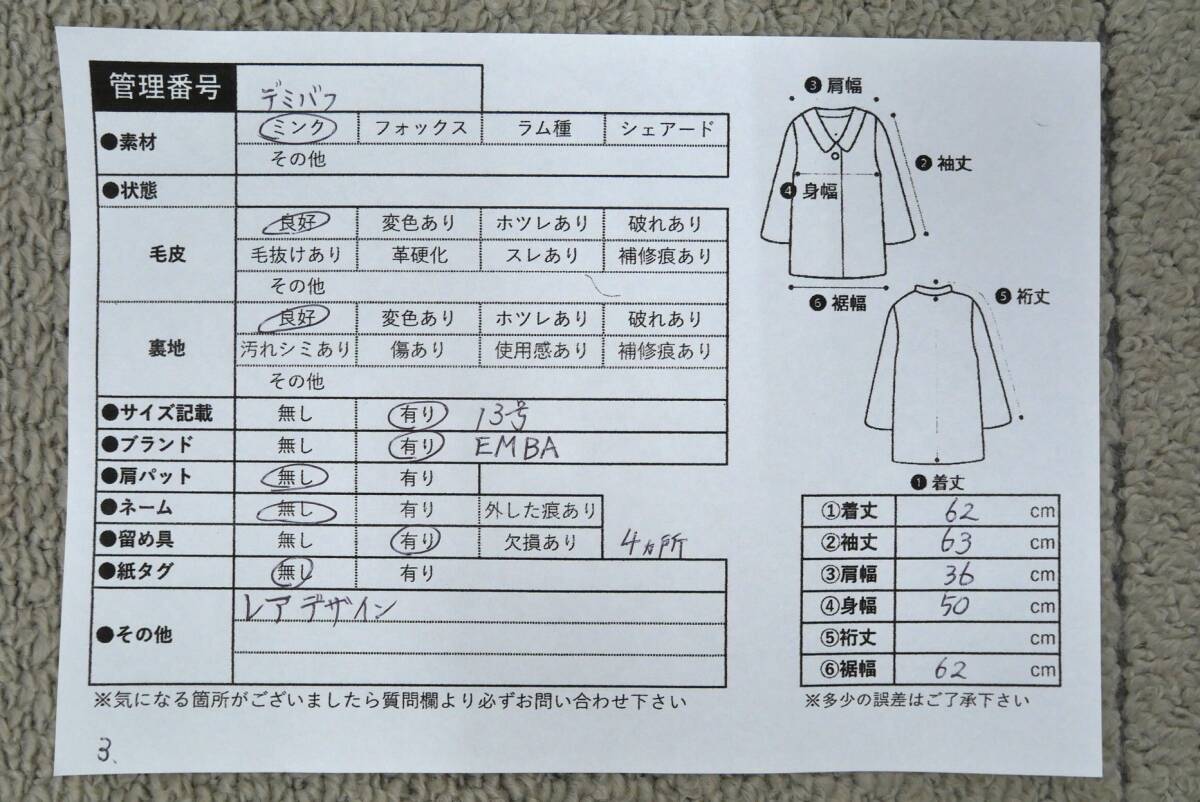 管理番号 デミバフ
●素材 ミンク フォックス ラム種 シェアード
その他
●状態
毛皮 良好 変色あり ホツレあり 破れあり
毛抜けあり 革硬化 スレあり 補修痕あり
その他
裏地 良好 変色あり ホツレあり 破れあり
汚れシミあり 傷あり 使用感あり 補修痕あり
その他
●サイズ記載 無し 有り 13号
●ブランド 無し 有り EMBA
●肩パット 無し 有り
●ネーム 無し 有り 外した痕あり
●留め具 無し 有り 欠損あり 4ヵ所
●紙タグ 無し 有り
●その他 レアデザイン
※気になる箇所がございましたら質問欄より必ずお問い合わせ下さい
3、
❸肩幅
❷袖丈
❹身幅
❻裾幅
❺裄丈
❶着丈
①着丈 62 cm
②袖丈 63 cm
③肩幅 36 cm
④身幅 50 cm
⑤裄丈 cm
⑥裾幅 62 cm
※多少の誤差はご了承下さい